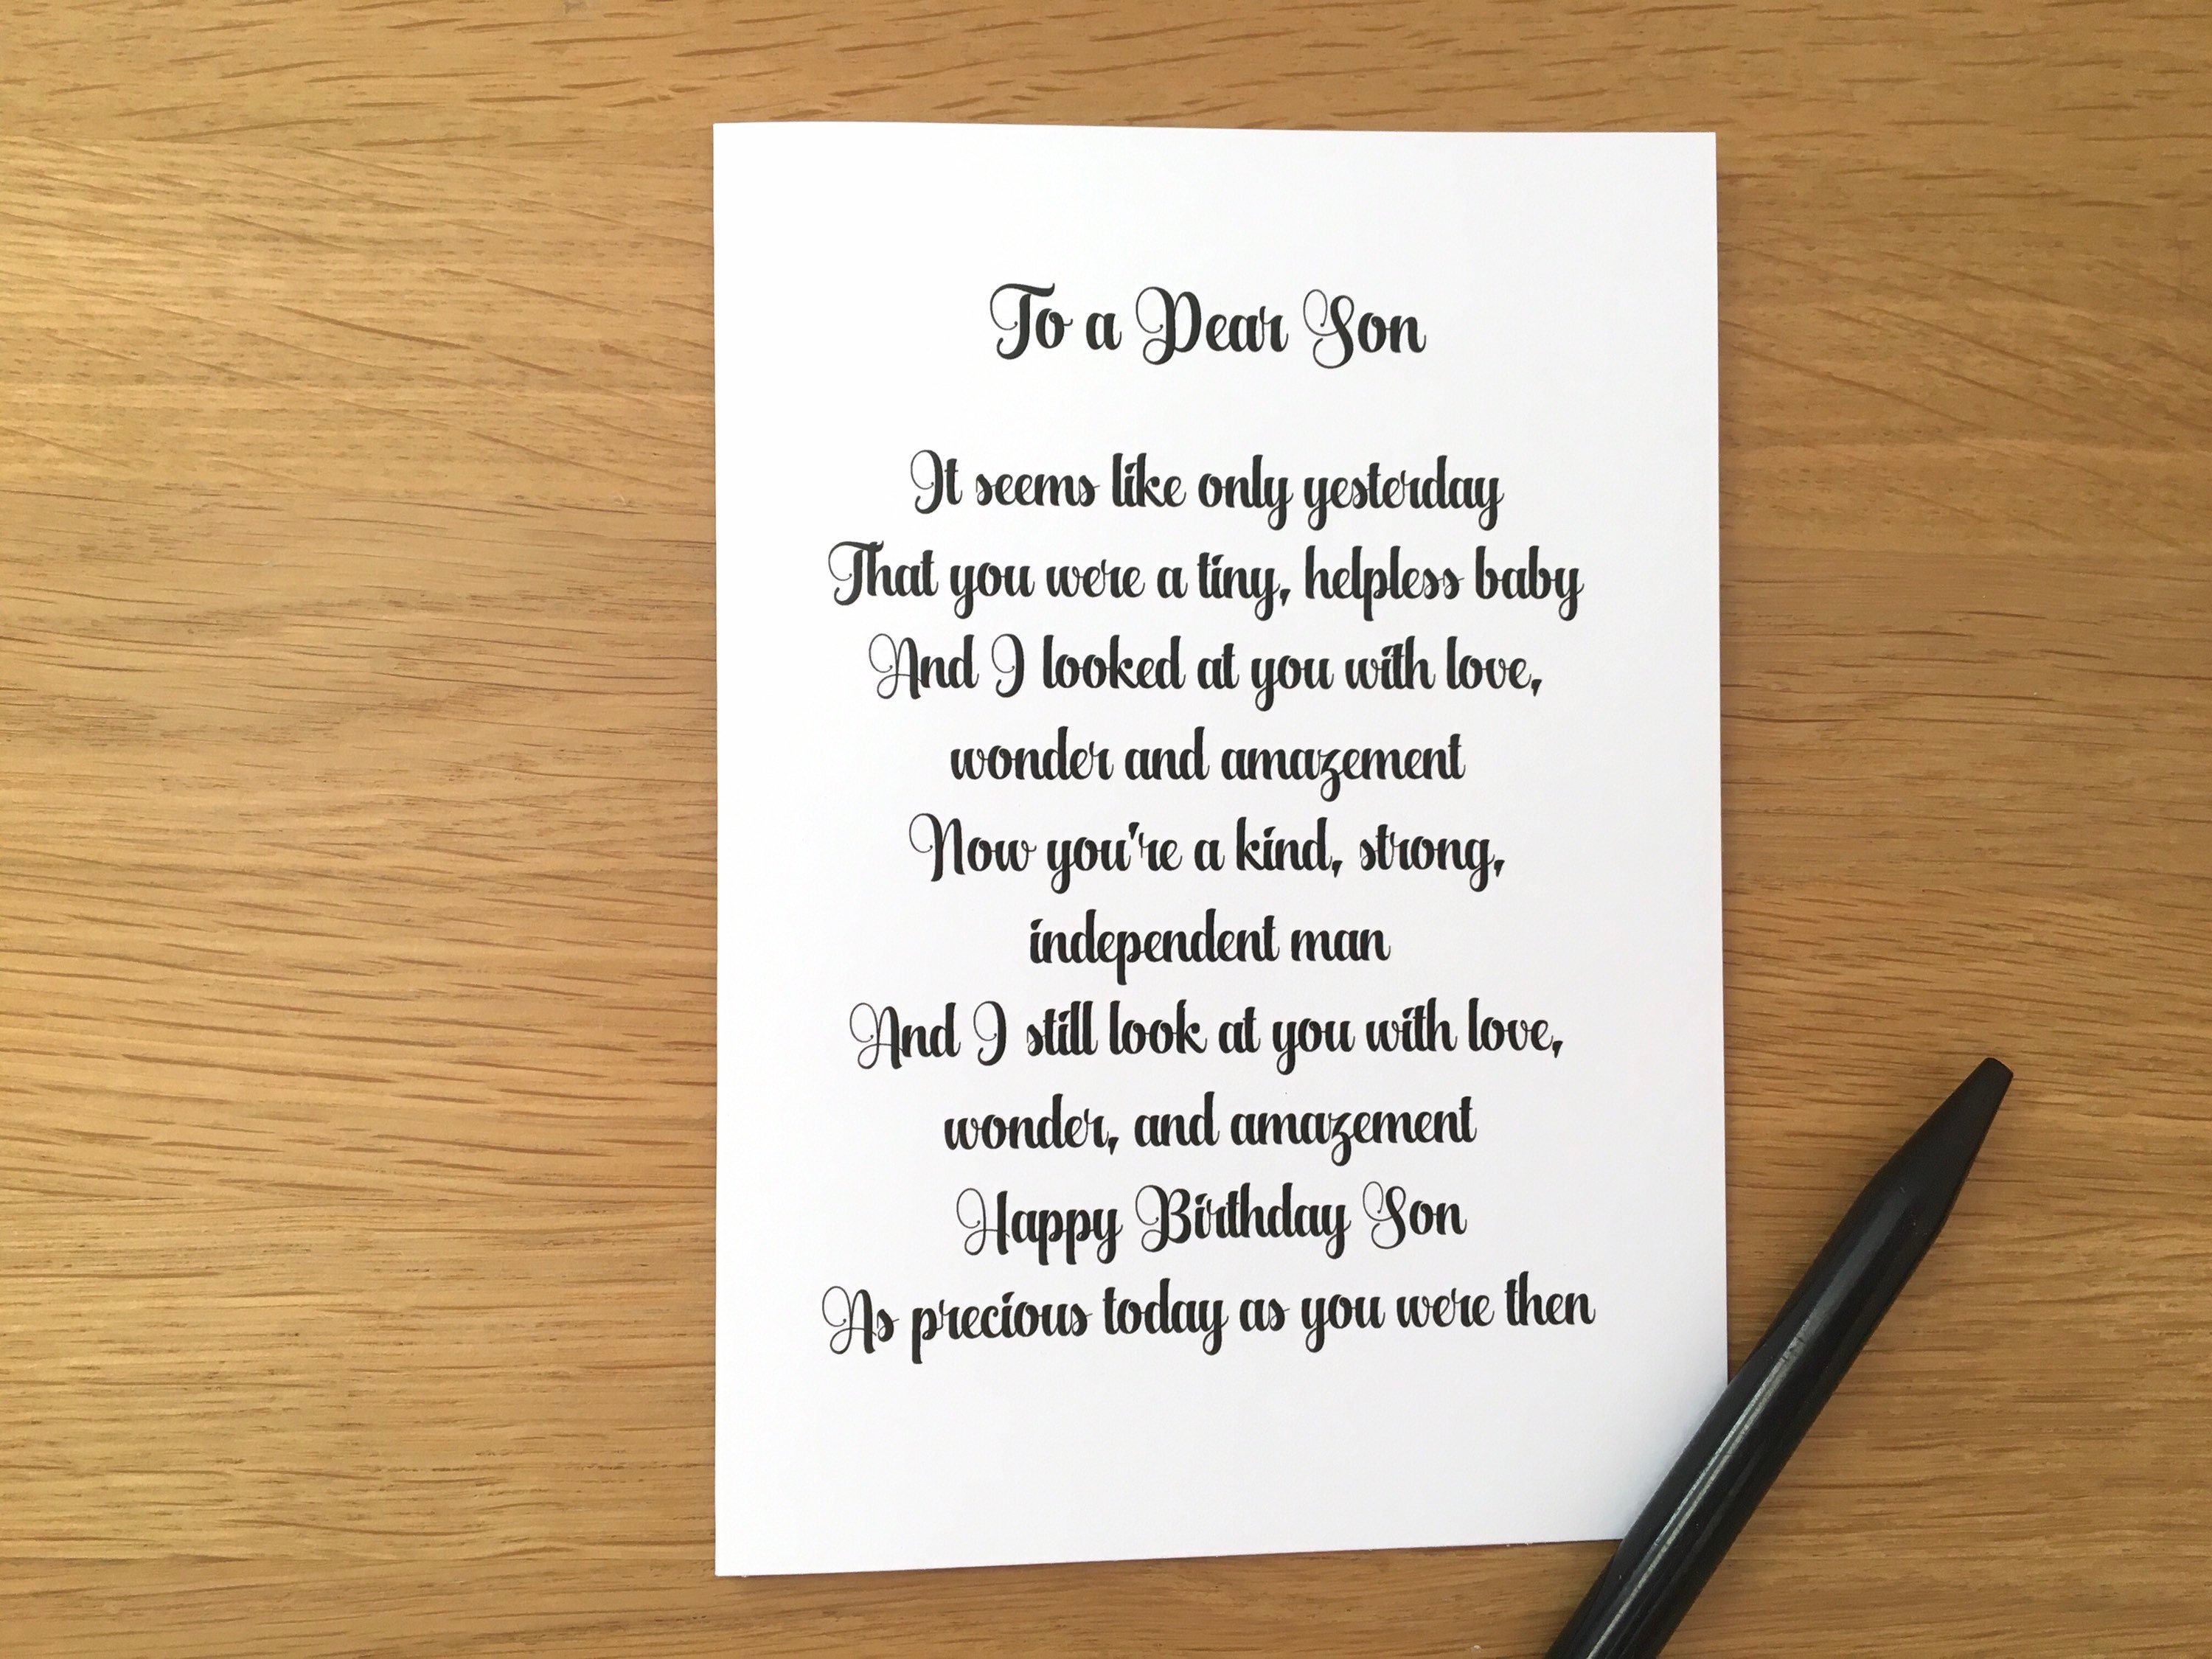 To a Dear Son
It seems like only yesterday
That you were a tiny, helpless baby
And I looked at you with love,
wonder and amazement
Now you're a kind, strong,
independent man
And I still look at you with love,
wonder, and amazement
Happy Birthday Son
As precious today as you were then